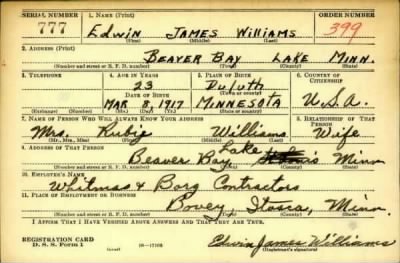 SERIAL NUMBER 1. NAME (Print) ORDER NUMBER
777 EDWIN JAMES WILLIAMS 399
(First) (Middle) (Last)
2. ADDRESS (Print)
BEAVER BAY LAKE MINN.
(Number and street or R. F. D. number) (Town) (County) (State)
3. TELEPHONE 4. AGE IN YEARS 5. PLACE OF BIRTH 6. COUNTRY OF CITIZENSHIP
23 Duluth
DATE OF BIRTH (Town or county)
MAR 8, 1917 MINNESOTA U.S.A.
(Exchange) (Number) (Mo.) (Day) (Yr.) (State or country)
7. NAME OF PERSON WHO WILL ALWAYS KNOW YOUR ADDRESS 8. RELATIONSHIP OF THAT PERSON
Mrs. Rubie Williams Wife
(Mr., Mrs., Miss) (First) (Middle) (Last)
9. ADDRESS OF THAT PERSON
Beaver Bay Lake Minn
(Number and street or R. F. D. number) (Town) (County) (State)
10. EMPLOYER'S NAME
& Borg Contractors
11. PLACE OF EMPLOYMENT OR BUSINESS
Bovey, Itasca, Minn.
(Number and street or R. F. D. number) (Town) (County) (State)
I AFFIRM THAT I HAVE VERIFIED ABOVE ANSWERS AND THAT THEY ARE TRUE.
REGISTRATION CARD
D. S. S. Form 1 (over) 16—17105 Edwin James Williams
(Registrant's signature)